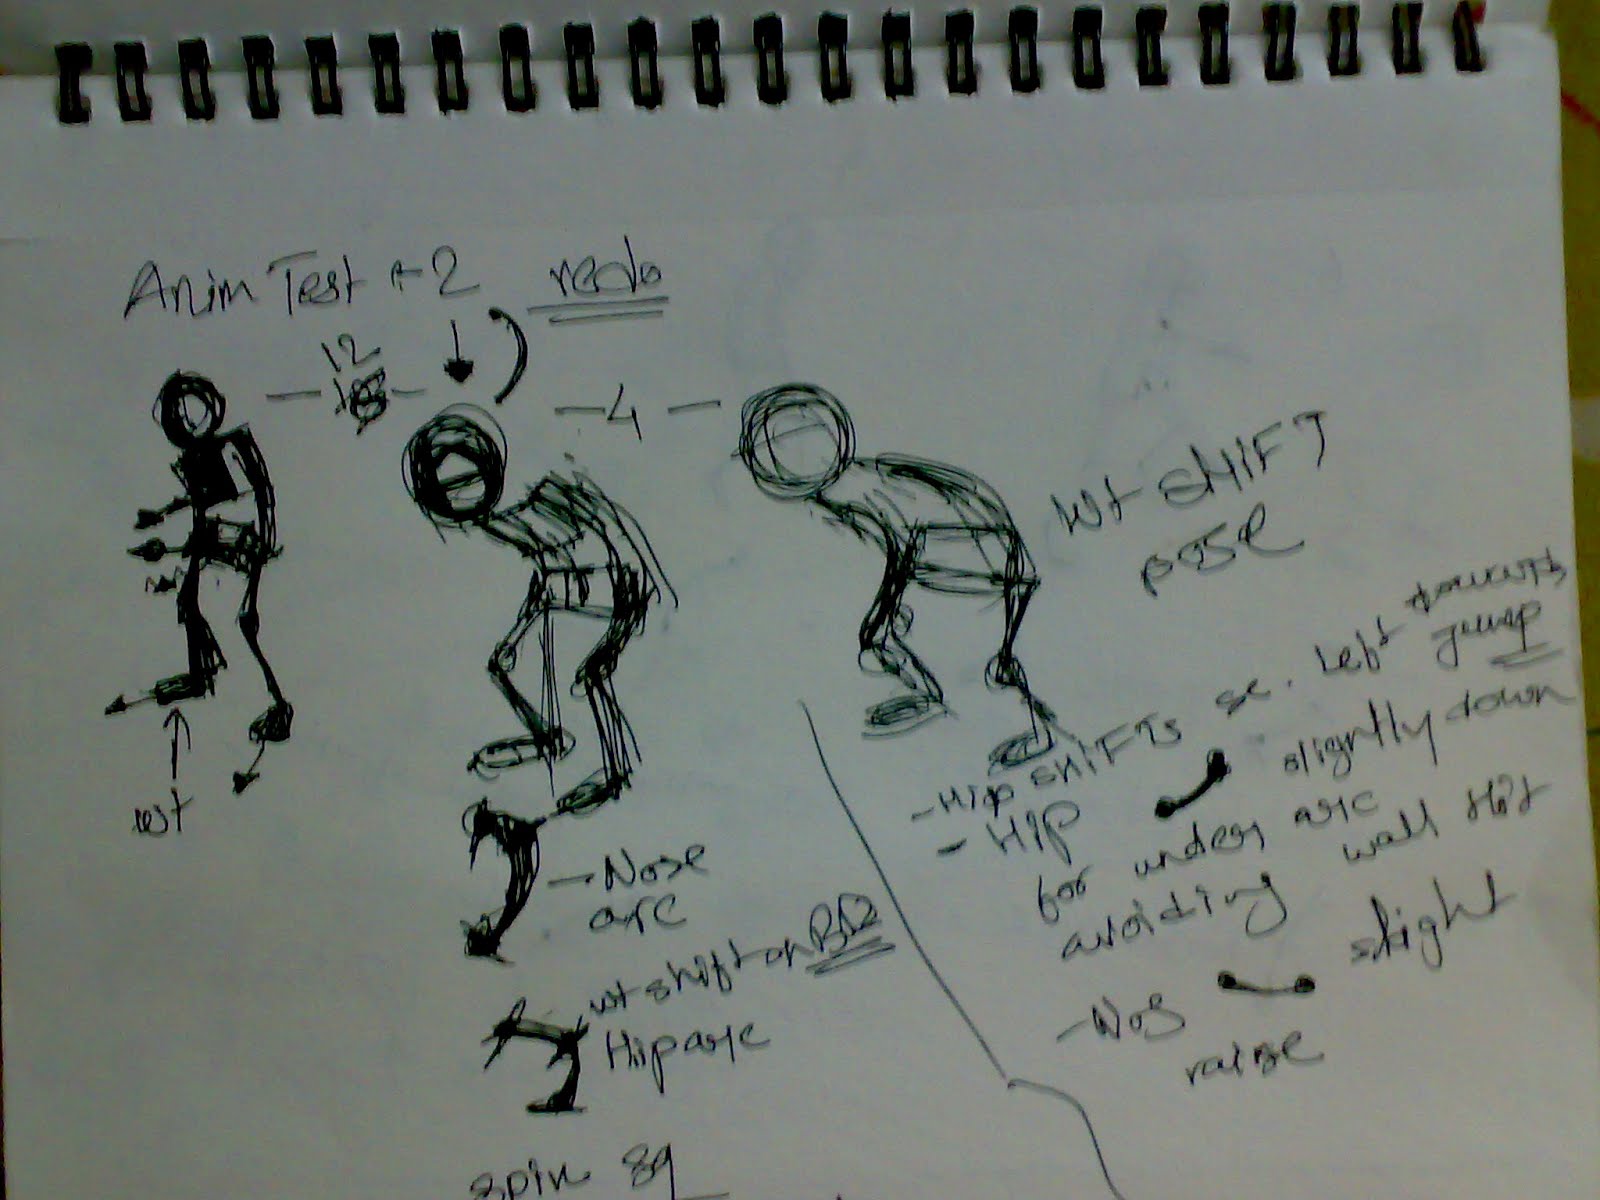 Anim Test - 2 redo
12
4
wt
Nose
arc
wt shift on
Hip arc
spin
Wt SHIFT
pose
- Hip SHIFTS Left towards
jump
- Hip slightly down
for under arc
avoiding wall Hit
- Nos slight
raise